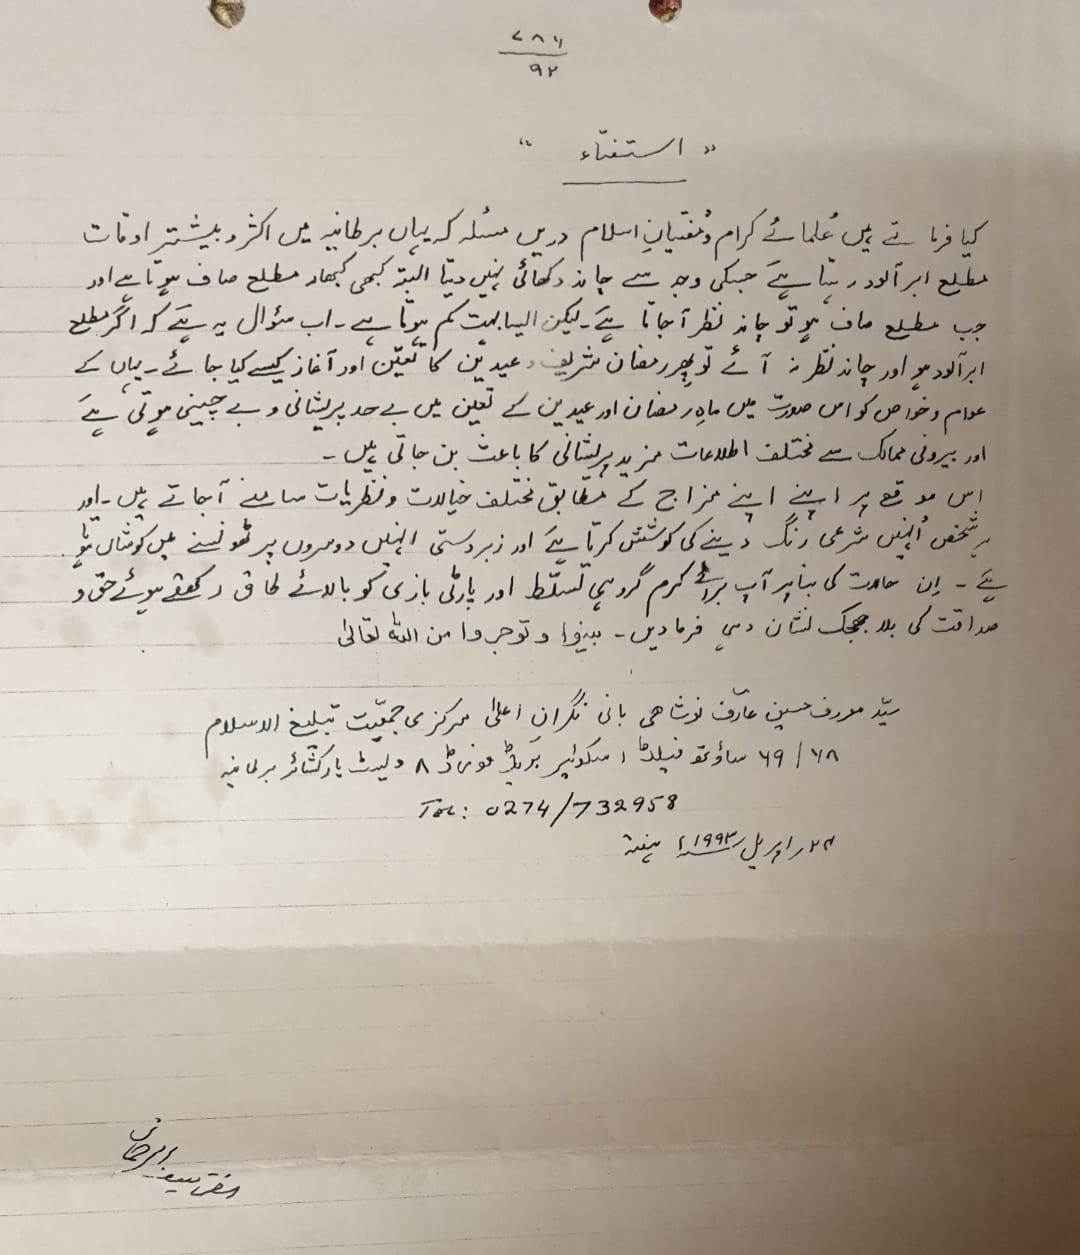 ۷۸۶
۹۲
"استفتاء"
کیا فرماتے ہیں عُلمائے کرام و مُفتیانِ اسلام دریں مسئلہ کہ یہاں برطانیہ میں اکثر و بیشتر اوقات
مطلع ابر آلود رہتا ہے جسکی وجہ سے چاند دکھائی نہیں دیتا البتہ کبھی کبھار مطلع صاف ہوتا ہے اور
جب مطلع صاف ہو تو چاند نظر آ جاتا ہے۔ لیکن ایسا بہت کم ہوتا ہے۔ اب سئوال یہ ہے کہ اگر مطلع
ابر آلود ہو اور چاند نظر نہ آئے تو پھر رمضان شریف و عیدین کا تعیّن اور آغاز کیسے کیا جائے۔ یہاں کے
عوام و خواص کو اس صورت میں ماہِ رمضان اور عیدین کے تعین میں بے حد پریشانی و بے چینی ہوتی ہے
اور بیرونی ممالک سے مختلف اطلاعات مزید پریشانی کا باعث بن جاتی ہیں۔
اس موقع پر اپنے اپنے مزاج کے مطابق مختلف خیالات و نظریات سامنے آ جاتے ہیں۔ اور
ہر شخص اُنہیں شرعی رنگ دینے کی کوشش کرتا ہے اور زبردستی انہیں دوسروں پر ٹھونسنے میں کوشاں ہوتا
ہے۔ اِن حالات کی بنا پر آپ برائے کرم گروہی تسلّط اور پارٹی بازی کو بالائے طاق رکھتے ہوئے حق و
صداقت کی بلا جھجک نشان دہی فرما دیں۔ بینوا و توجروا من اللہ تعالیٰ
سیّد معروف حسین عارف نوشاہی بانی نگران اعلیٰ مرکزی جمعیّت تبلیغ الاسلام
۶۸/۶۹ ساؤتھ فیلڈ اسکوائیر بریڈ فورڈ ۸ ویسٹ یارکشائر برطانیہ
Tel: 0274/732958
۲۴ اپریل ۱۹۹۳ء ہفتہ